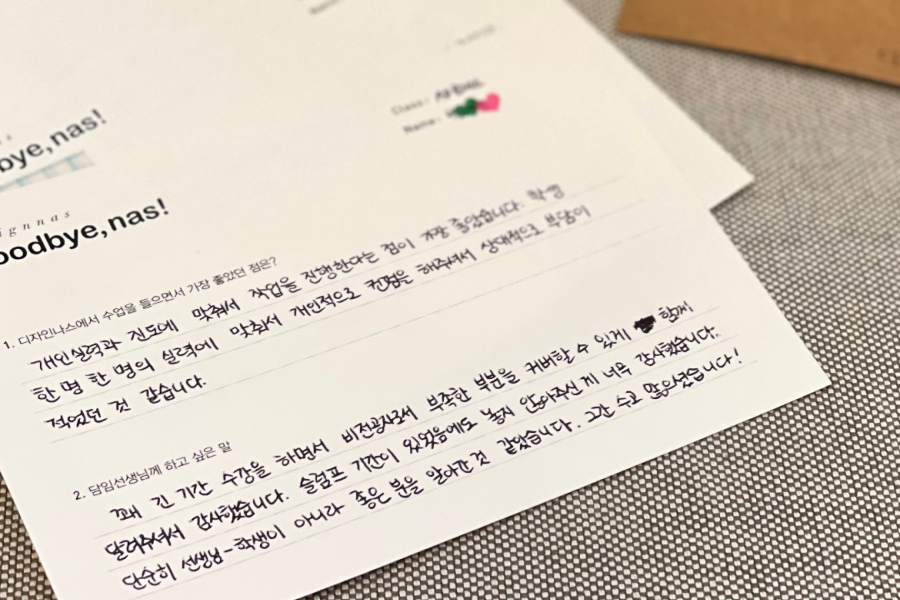 bye,nas!
Class:
Name:
ignnas
oodbye,nas!
1. 디자인나스에서 수업을 들으면서 가장 좋았던 점은?
개인실력과 진도에 맞춰서 작업을 진행한다는 점이 가장 좋았습니다. 학생
한 명 한 명의 실력에 맞춰서 개인적으로 컨펌을 해주셔서 상대적으로 부담이
적었던 것 같습니다.
2. 담임선생님께 하고 싶은 말
꽤 긴 기간 수강을 하면서 비전공생으로서 부족한 부분을 커버할 수 있게 함께
달려주셔서 감사했습니다. 슬럼프 기간이 있었음에도 놓지 않아주신 게 너무 감사했습니다.
단순히 선생님-학생이 아니라 좋은 분을 알아간 것 같았습니다. 그간 수고 많으셨습니다!